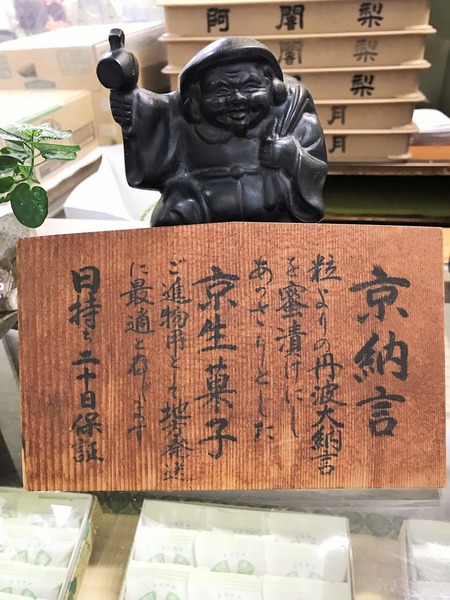 京納言
粒よりの丹波大納言
を蜜漬けにし
あっさりとした
京生菓子
ご進物用とて地方発送
に最適と存じます
日持ち二十日保証
阿闍梨
阿闍梨
梨
月
月